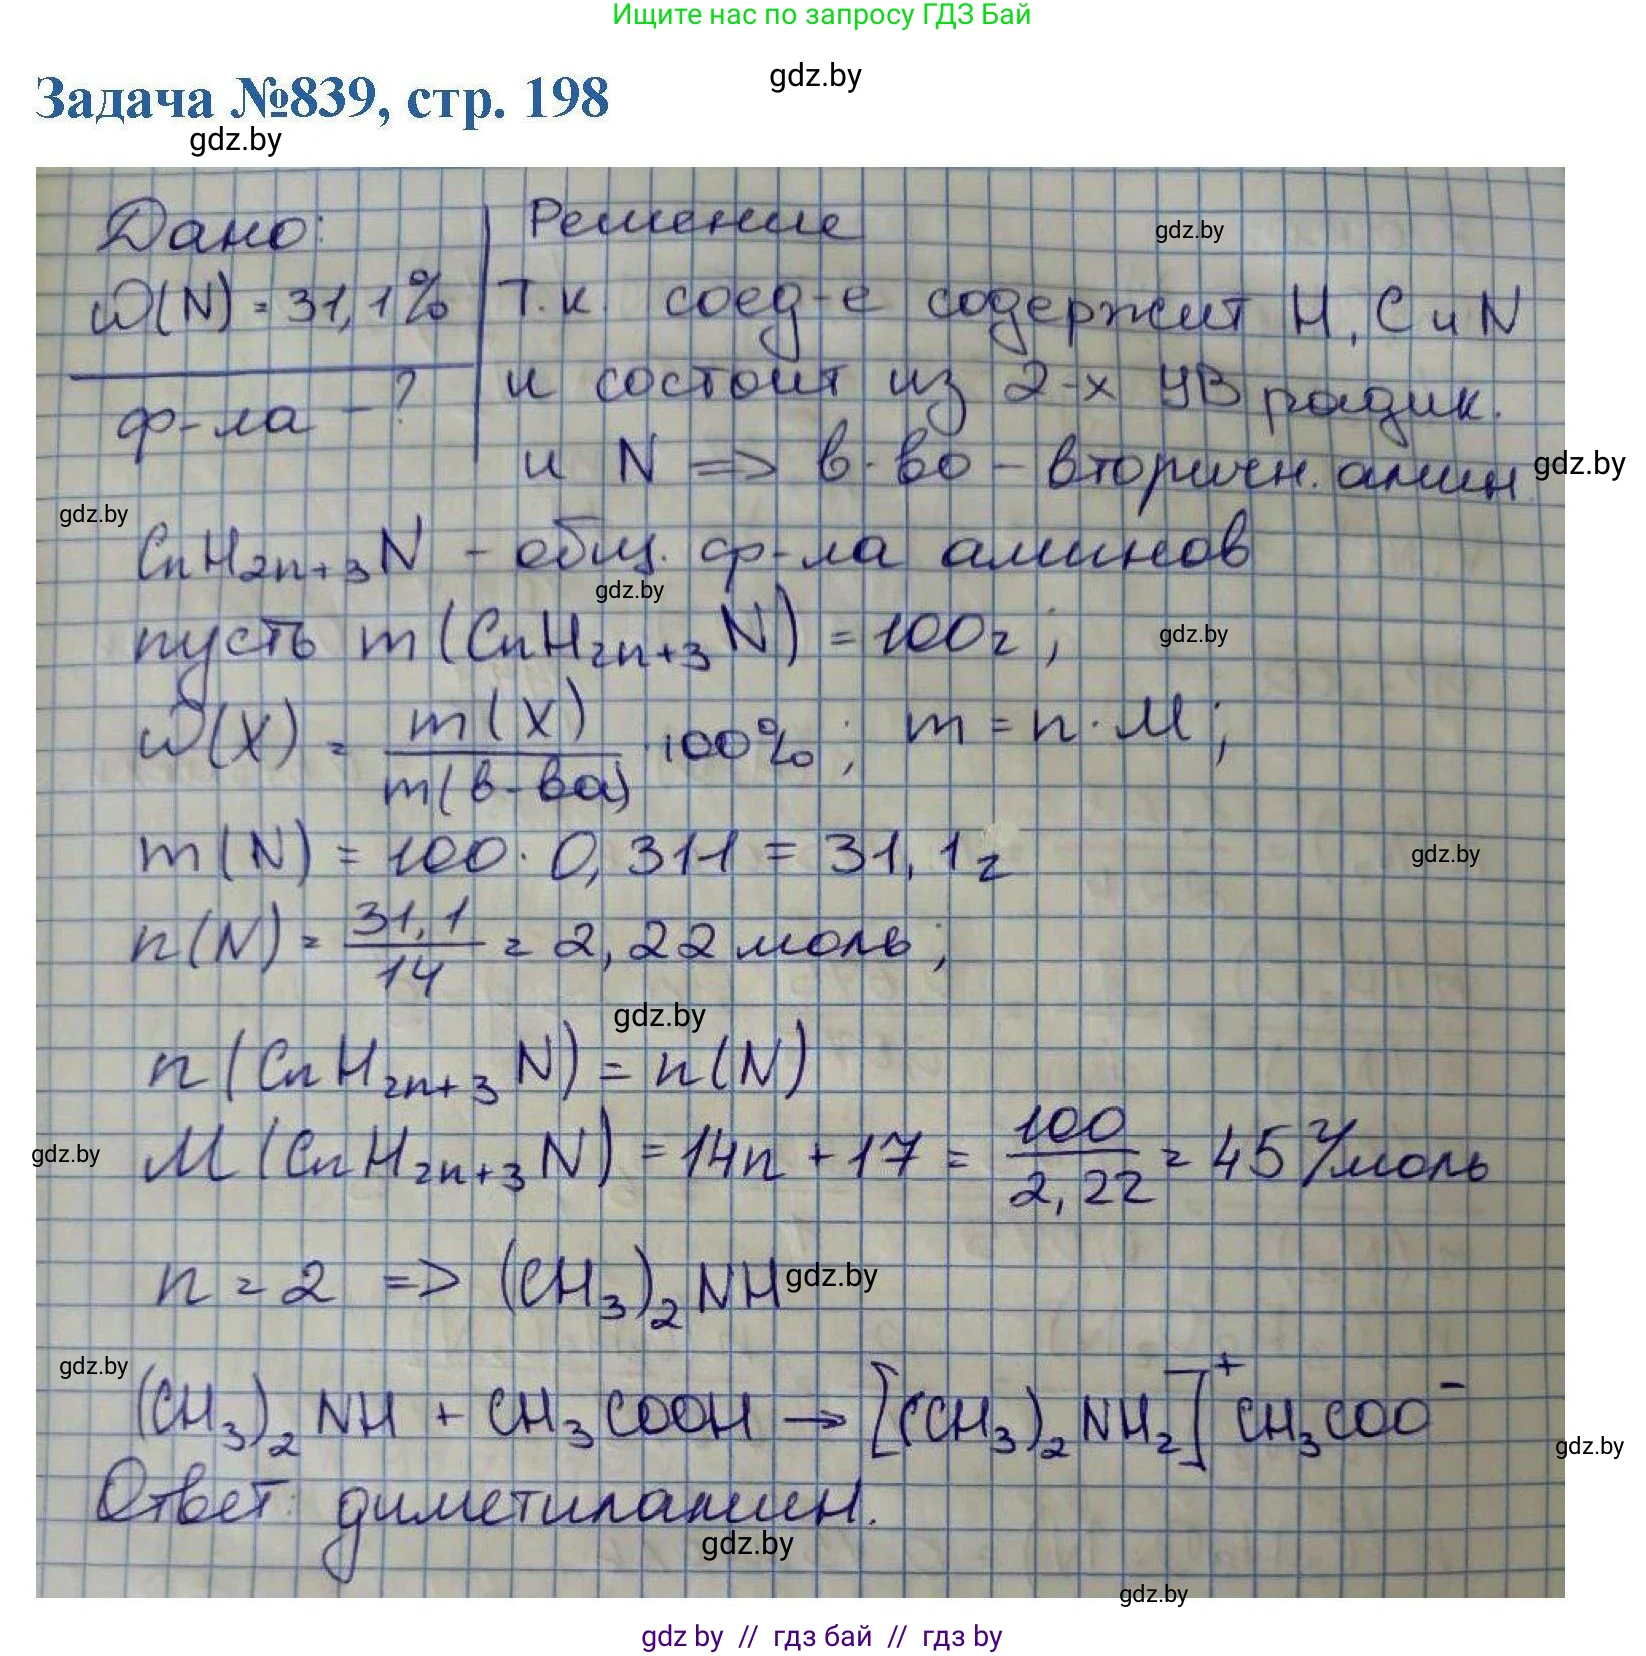 Ищите нас по запросу ГДЗ Бай
gdz.by
Задача №839, стр. 198
gdz.by
Дано: Решение
gdz.by
ω(N) = 31,1% Т.к. соед-е содержит H, C и N
ф-ла - ? и состоит из 2-х УВ радик.
и N => в-во - вторичн. амин
gdz.by
gdz.by
CnH2n+3N - общ. ф-ла аминов
gdz.by
пусть m(CnH2n+3N) = 100г;
gdz.by
ω(X) = m(X)/m(в-ва) · 100%; m = n · M;
m(N) = 100 · 0,311 = 31,1г
gdz.by
n(N) = 31,1/14 = 2,22 моль;
gdz.by
n(CnH2n+3N) = n(N)
M(CnH2n+3N) = 14n + 17 = 100/2,22 = 45 г/моль
gdz.by
n = 2 => (CH3)2NH
gdz.by
gdz.by
(CH3)2NH + CH3COOH → [(CH3)2NH2]+ CH3COO-
gdz.by
Ответ: диметиламин.
gdz.by
gdz.by
gdz by // гдз бай // гдз by